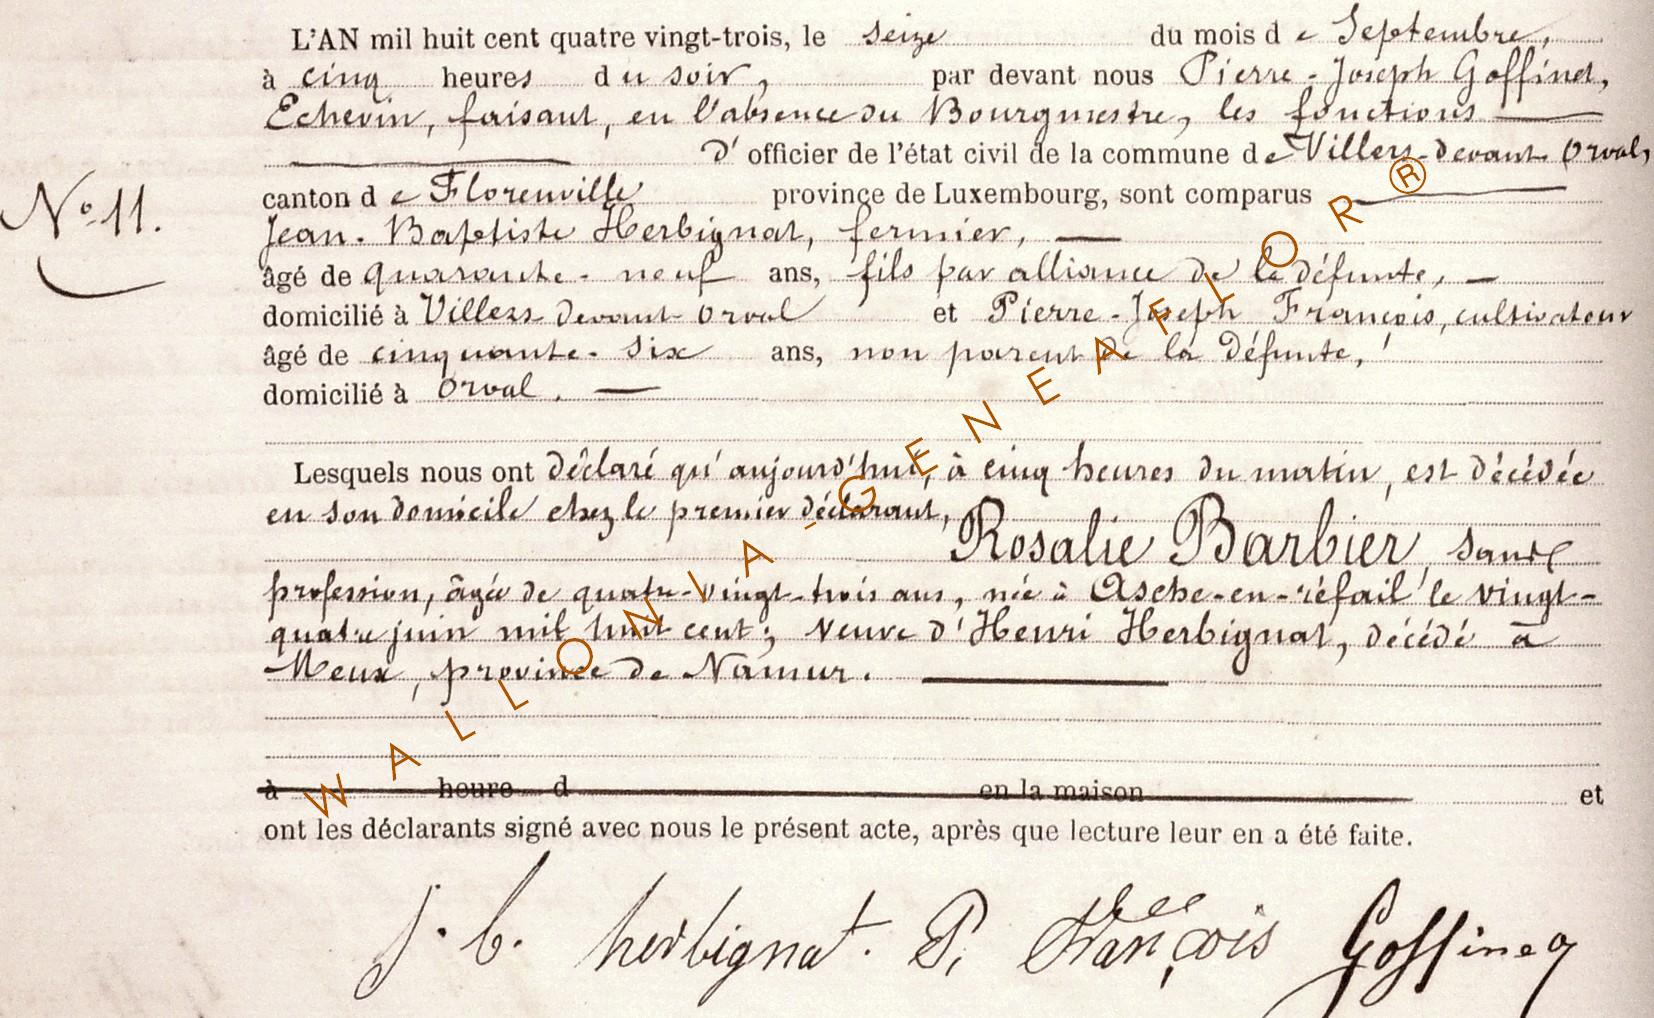 L'AN mil huit cent quatre vingt-trois, le seize du mois de Septembre,
à cinq heures du soir, par devant nous Pierre-Joseph Goffinet,
Echevin, faisant, en l'absence du Bourgmestre, les fonctions
d'officier de l'état civil de la commune de Villers-devant-Orval,
canton de Florenville province de Luxembourg, sont comparus
N° 11.
Jean-Baptiste Herbignat, fermier,
âgé de quarante-neuf ans, fils par alliance de la défunte,
domicilié à Villers-devant-Orval et Pierre-Joseph François, cultivateur
âgé de cinquante-six ans, non parent de la défunte,
domicilié à Orval.
Lesquels nous ont déclaré qu'aujourd'hui, à cinq heures du matin, est décédée
en son domicile chez le premier déclarant,
Rosalie Barbier, sans
profession, âgée de quatre-vingt-trois ans, née à Asche-en-réfail le vingt-
quatre juin mil huit cent; veuve d'Henri Herbignat, décédé à
Meux, province de Namur.
à heure d en la maison et
ont les déclarants signé avec nous le présent acte, après que lecture leur en a été faite.
j. b. herbignat. P. J. François Goffinet
WALLONIA-GENEAFLOR®